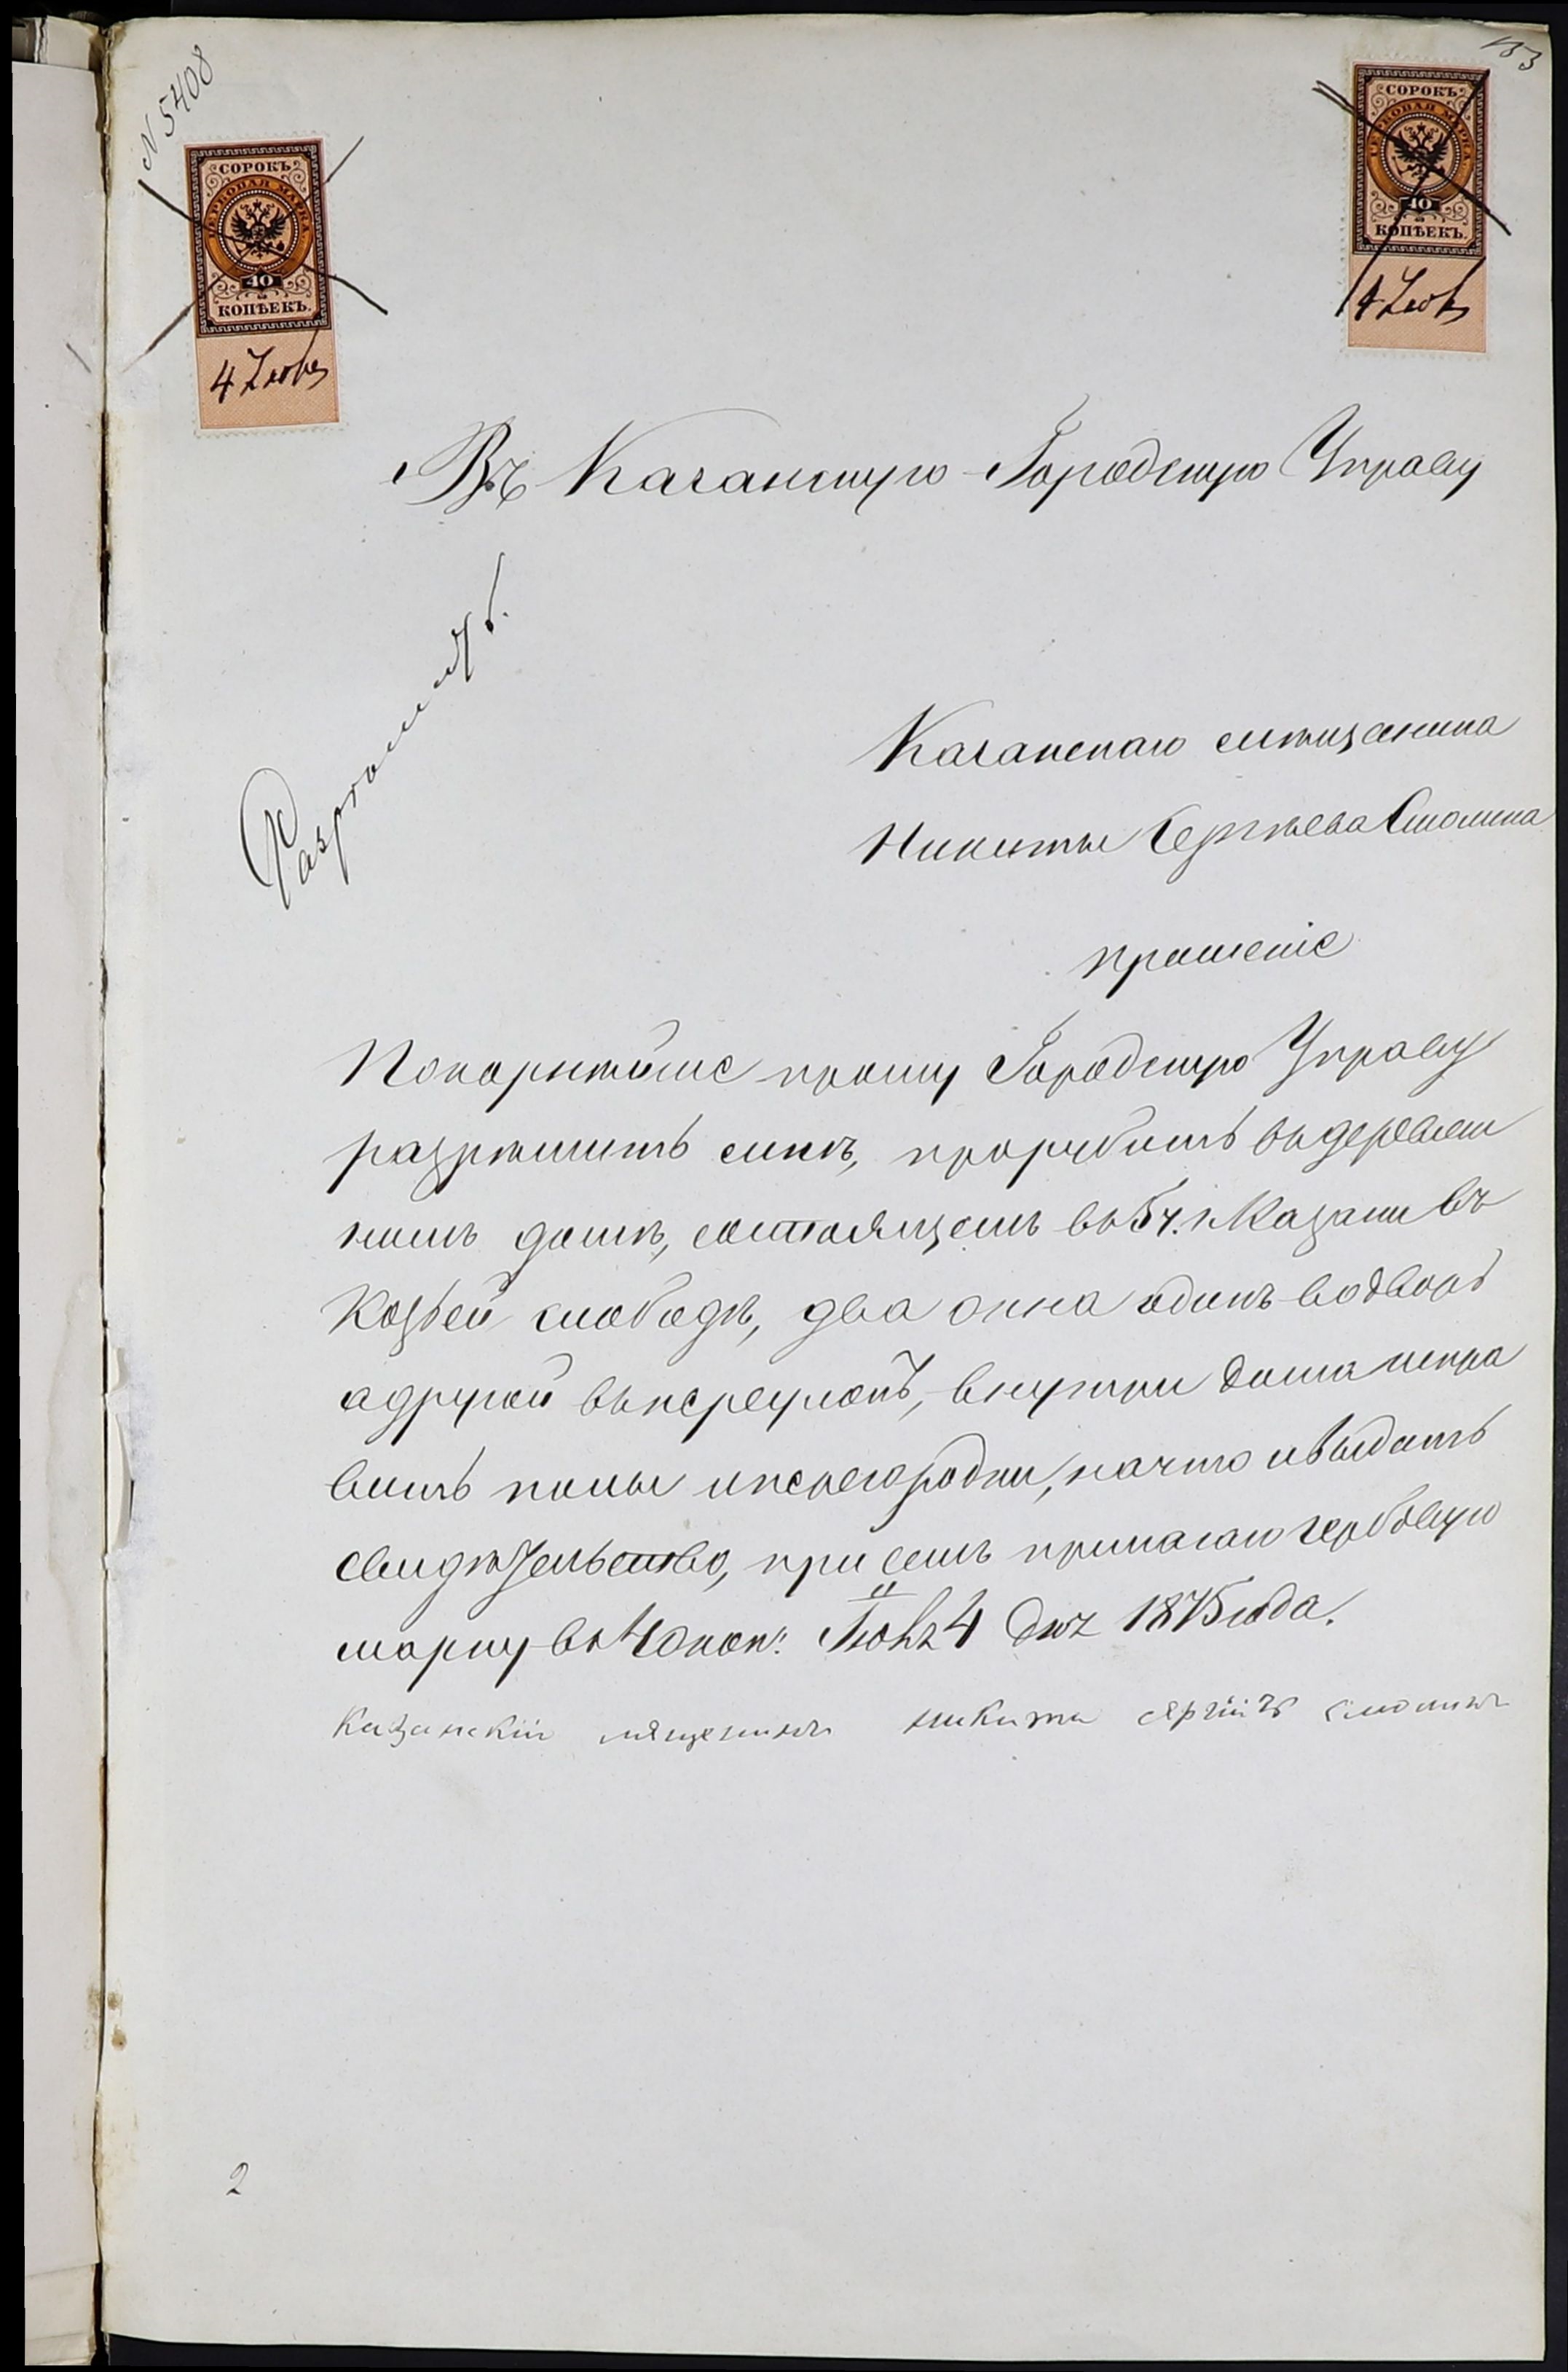 153
N 5408
СОРОКЪ
ГЕРБОВАЯ МАРКА
40
КОПѢЕКЪ.
4 Іюня
СОРОКЪ
ГЕРБОВАЯ МАРКА
40
КОПѢЕКЪ.
4 Іюня
Въ Казанскую Городскую Управу
Разрѣшить.
Казанскаго мѣщанина
Никиты Сергѣева Смолина
прошеніе
Покорнѣйше прошу Городскую Управу
разрѣшить мнѣ, прорубить въ деревян
номъ домѣ, состоящемъ въ 5 ч. г. Казани въ
Козьей слободѣ, два окна одинъ во дворъ
а другой въ переулокъ, внутри дома испра
вить полы и перегородки, на что и выдать
свидѣтельство, при семъ прилагаю гербовую
марку въ 40 коп: Іюня 4 дня 1875 года.
Казанскій мящетинъ никита сяргіивъ смолинъ
2